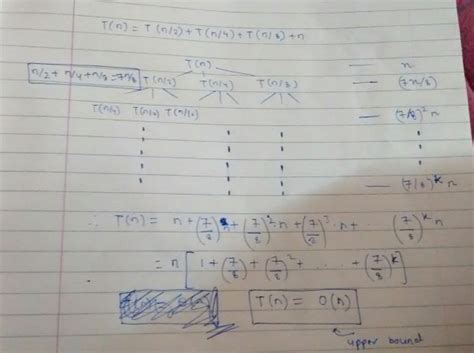 T(n) = T(n/2) + T(n/4) + T(n/8) + n
T(n) — n
n/2 + n/4 + n/8 = 7n/8 T(n/2) T(n/4) T(n/8) — (7n/8)
T(n/4) T(n/8) T(n/16) — (7/8)² n
— (7/8)^k n
∴ T(n) = n + (7/8)n + (7/8)² n + (7/8)³ n + ... (7/8)^k n
= n [ 1 + (7/8) + (7/8)² + ... + (7/8)^k ]
T(n) = O(n)
upper bound